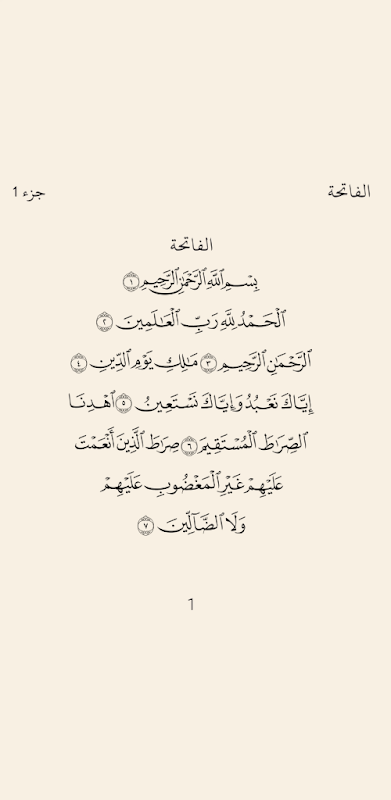 الفاتحة
جزء 1
الفاتحة
بِسْمِ ٱللَّهِ ٱلرَّحْمَٰنِ ٱلرَّحِيمِ ١
ٱلْحَمْدُ لِلَّهِ رَبِّ ٱلْعَٰلَمِينَ ٢
ٱلرَّحْمَٰنِ ٱلرَّحِيمِ ٣ مَٰلِكِ يَوْمِ ٱلدِّينِ ٤
إِيَّاكَ نَعْبُدُ وَإِيَّاكَ نَسْتَعِينُ ٥ ٱهْدِنَا
ٱلصِّرَٰطَ ٱلْمُسْتَقِيمَ ٦ صِرَٰطَ ٱلَّذِينَ أَنْعَمْتَ
عَلَيْهِمْ غَيْرِ ٱلْمَغْضُوبِ عَلَيْهِمْ
وَلَا ٱلضَّآلِّينَ ٧
1